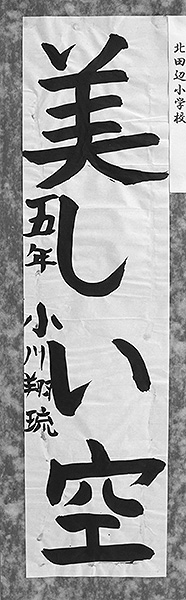 北田辺小学校
美しい空
五年 小川翔琉